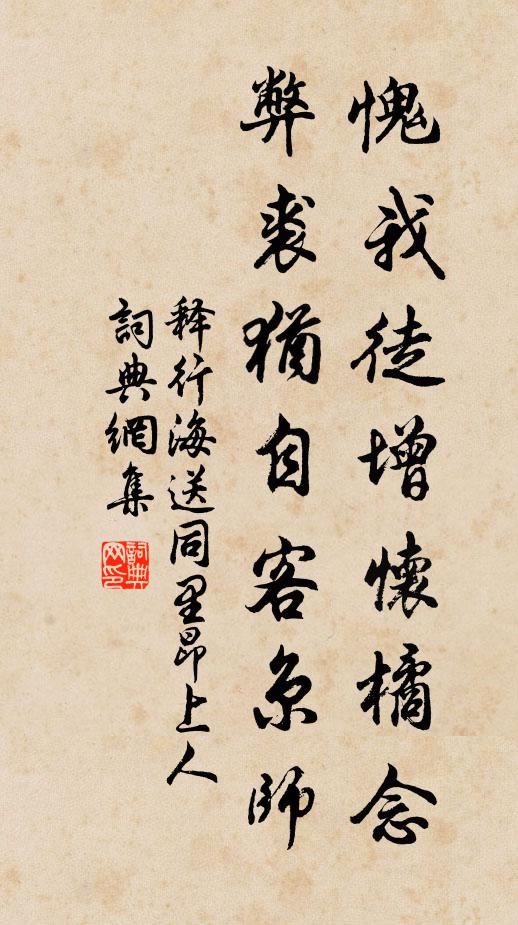 愧我徒增懷橘念
弊裘猶自客京師
釋行海送同里昂上人
詞典網集
詞典網印